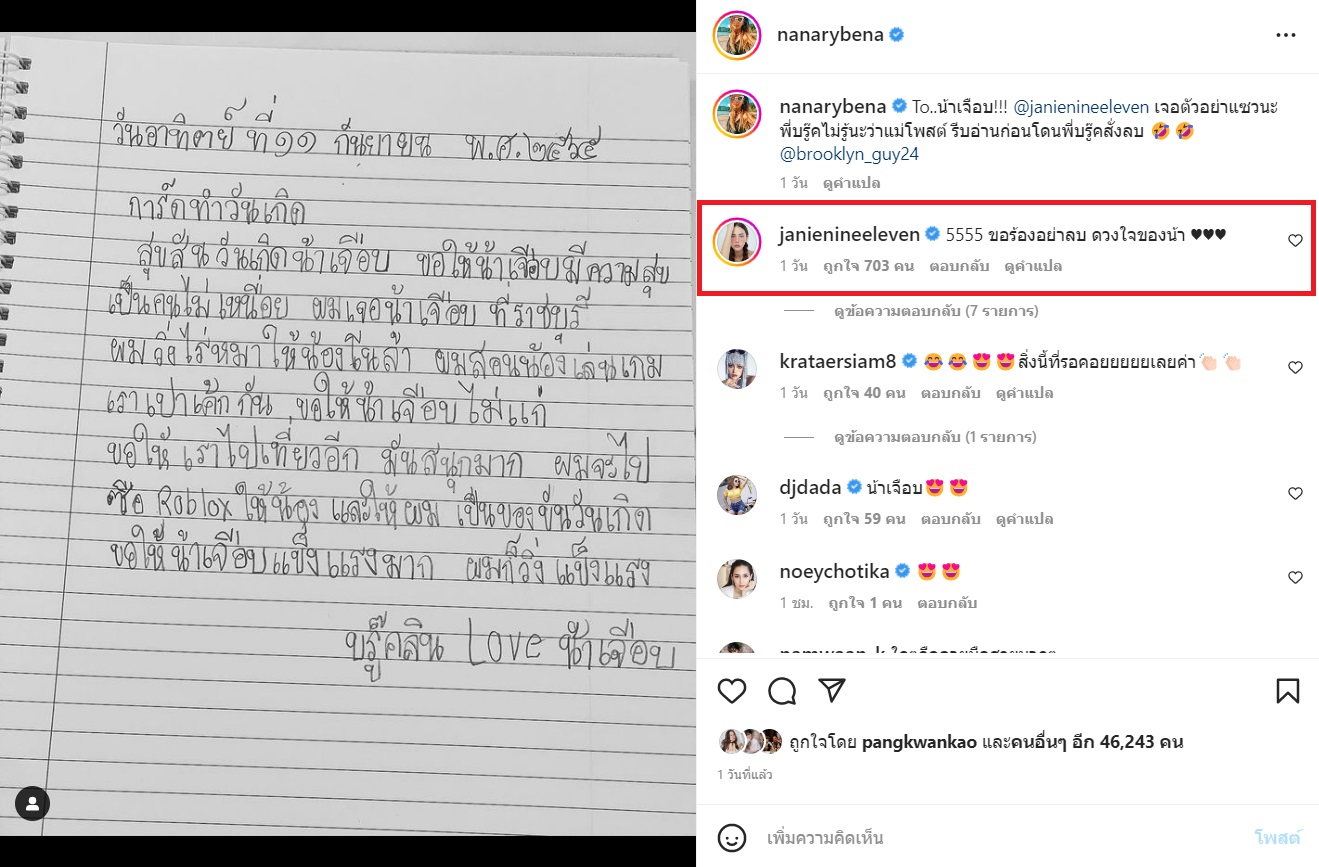 วันอาทิตย์ ที่ ๑๑ กันยายน พ.ศ.๒๕๖๕
การ์ดทำวันเกิด
สุขสันวันเกิดน้าเจือบ ขอให้น้าเจือบมีความสุข
เป็นคนไม่เหนื่อย ผมเจอน้าเจือบ ที่ราชบุรี
ผมวิ่งไร่หมาให้น้องบีนล่า ผมสอนน้องเล่นเกม
เราเป่าเค้กกัน ขอให้น้าเจือบไม่แก่
ขอให้เราไปเที่ยวอีก มันสนุกมาก ผมจะไป
ซือ Roblox ให้น้อง และให้ผม เป็นของขันวันเกิด
ขอให้น้าเจือบแข็งแรงมาก ผมก็วิ่งแข็งแรง
บรู๊คลิน Love น้าเจือบ
nanarybena
nanarybena To..น้าเจือบ!!! @janienineeleven เจอตัวอย่าแซวนะ
พี่บรู๊คไม่รู้นะว่าแม่โพสต์ รีบอ่านก่อนโดนพี่บรู๊คสั่งลบ 🤣 🤣
@brooklyn_guy24
1 วัน ดูคำแปล
janienineeleven 5555 ขอร้องอย่าลบ ดวงใจของน้า ♥♥♥
1 วัน ถูกใจ 703 คน ตอบกลับ ดูคำแปล
ดูข้อความตอบกลับ (7 รายการ)
krataersiam8 😂 😂 😍 😍 สิ่งนี้ที่รอคอยยยยยเลยค่า 👏🏻 👏🏻
1 วัน ถูกใจ 40 คน ตอบกลับ ดูคำแปล
ดูข้อความตอบกลับ (1 รายการ)
djdada น้าเจือบ😍 😍
1 วัน ถูกใจ 59 คน ตอบกลับ ดูคำแปล
noeychotika 😍 😍
1 ชม. ถูกใจ 1 คน ตอบกลับ
ถูกใจโดย pangkwankao และคนอื่นๆ อีก 46,243 คน
1 วันที่แล้ว
เพิ่มความคิดเห็น
โพสต์